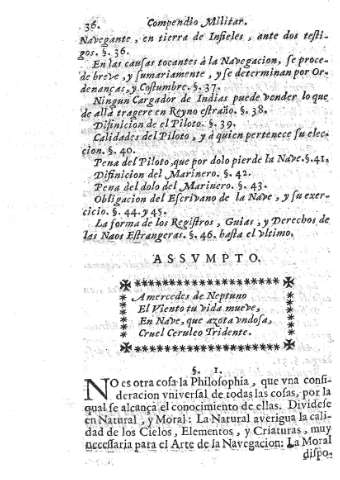 36. Compendio Militar.
Navegante, en tierra de Infieles, ante dos testi-
gos. §. 36.
En las causas tocantes à la Navegacion, se proce-
de breve, y sumariamente, y se determinan por Or-
denanças, y Costumbre. §. 37.
Ningun Cargador de Indias puede vender lo que
de allà tragere en Reyno estraño. §. 38.
Difinicion de el Piloto. §. 39.
Calidades del Piloto, y à quien pertenece su elec-
cion. §. 40.
Pena del Piloto, que por dolo pierde la Nave. §. 41.
Difinicion del Marinero. §. 42.
Pena del dolo del Marinero. §. 43.
Obligacion del Escrivano de la Nave, y su exer-
cicio. §. 44. y 45.
La forma de los Registros, Guias, y Derechos de
las Naos Estrangeras. §. 46. hasta el vltimo.
ASSVMPTO.
A mercedes de Neptuno
El Viento tu vida mueve,
En Nave, que azota vndosa,
Cruel Ceruleo Tridente.
§. 1.
NO es otra cosa la Philosophia, que vna consi-
deracion vniversal de todas las cosas, por la
qual se alcança el conocimiento de ellas. Dividese
en Natural, y Moral: La Natural averigua la cali-
dad de los Cielos, Elementos, y Criaturas, muy
necessaria para el Arte de la Navegacion: La Moral
dispo-